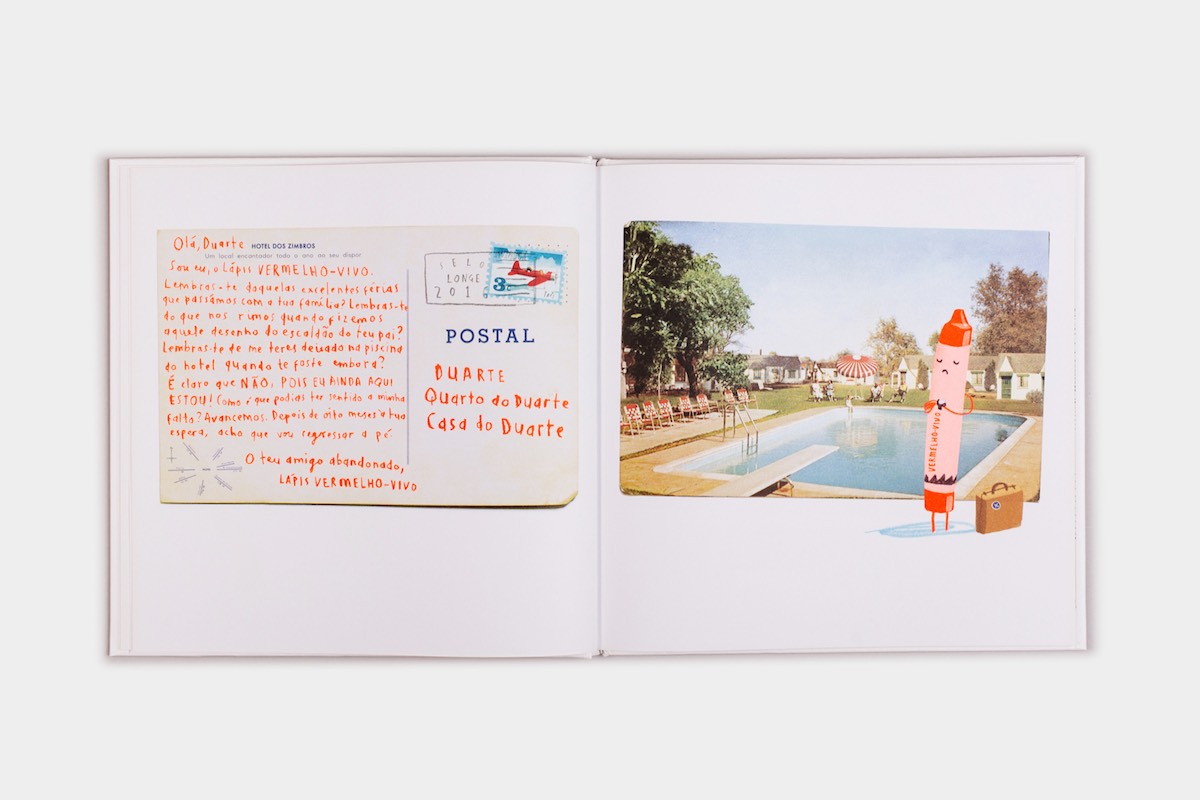 Olá, Duarte HOTEL DOS ZIMBROS
Um local encantador todo o ano ao seu dispor
Sou eu, o Lápis VERMELHO-VIVO.
Lembras-te daquelas excelentes férias
que passámos com a tua família? Lembras-te
do que nos rimos quando fizemos
aquele desenho do escaldão do teu pai?
Lembras-te de me teres deixado na piscina
do hotel quando te foste embora?
É claro que NÃO, POIS EU AINDA AQUI
ESTOU! Como é que podias ter sentido a minha
falta? Avancemos. Depois de oito meses à tua
espera, acho que vou regressar a pé.
O teu amigo abandonado,
LÁPIS VERMELHO-VIVO
SELO
LONGE
201
3
POSTAL
DUARTE
Quarto do Duarte
Casa do Duarte
VERMELHO-VIVO